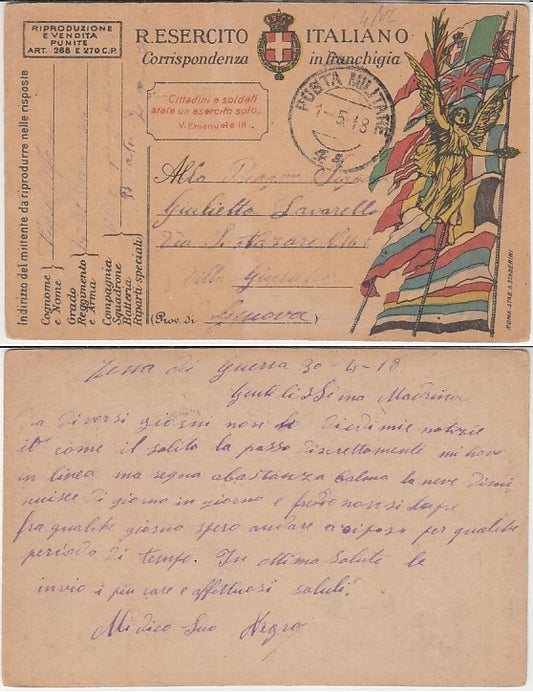 RIPRODUZIONE
E VENDITA
PUNITE
ART. 268 E 270 C.P.
R. ESERCITO ITALIANO
Corrispondenza in franchigia
Cittadini e soldati
siate un esercito solo.
V. Emanuele III
POSTA MILITARE
1-5-18
Indirizzo del mittente da riprodurre nelle risposte
Cognome
e Nome
Grado
Reggimento
e Arma
Compagnia
Squadrone
Batteria
Riparti speciali
Alla
Giulietta Lavarello
Via S. Nazaro
Villa
(Prov. di Genova)
ROMA-STAB. A. STADERINI
Zona di Guerra 30-4-18
Gentilissima Madrina
Da diversi giorni non le diedi mie notizie
come il solito la passo discrettamente mi trovo
in linea ma regna abastanza calma la neve dimi
nuisce di giorno in giorno e freddo non si
fra qualche giorno spero andare a riposo per qualche
periodo di tempo. In ottima salute le
invio i più care e affettuosi saluti.
Mi dico Suo Negro